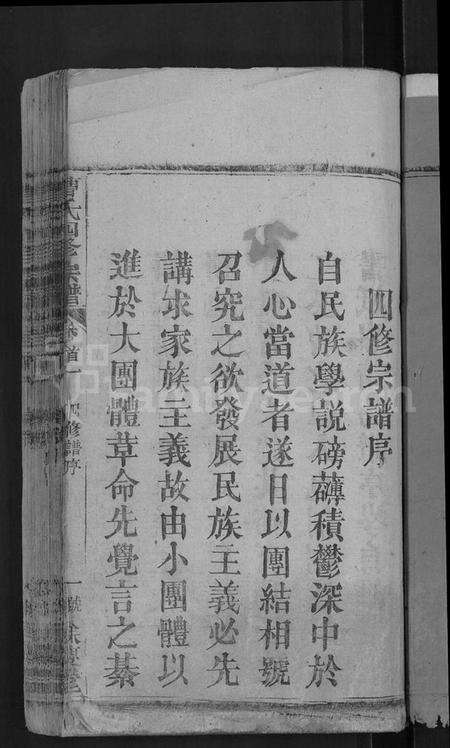 四修宗譜序
自民族學說磅礴積鬱深中於
人心當道者遂日以團結相號
召究之欲發展民族主義必先
講求家族主義故由小團體以
進於大團體革命先覺言之綦
曹氏四修宗譜
卷首一
四修譜序
一